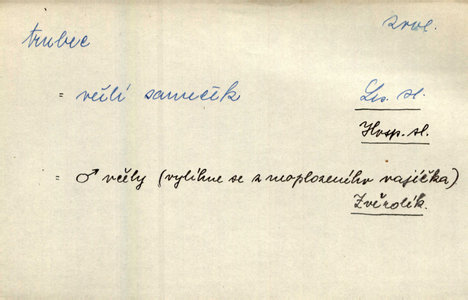 trubec zool.
= včelí sameček Les. sl.
Hosp. sl.
= ♂ včely (vylíhne se z neoplozeného vajíčka)
Zvěrolék.